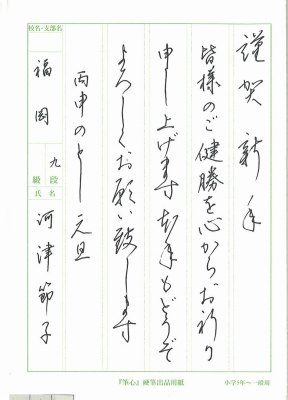 謹賀新年
皆様のご健勝を心からお祈り
申し上げます本年もどうぞ
よろしくお願い致します
丙申のとし元旦
校名・支部名
福岡
九
段
級
氏名
河津節子
『筆心』硬筆出品用紙
小学5年～一般用